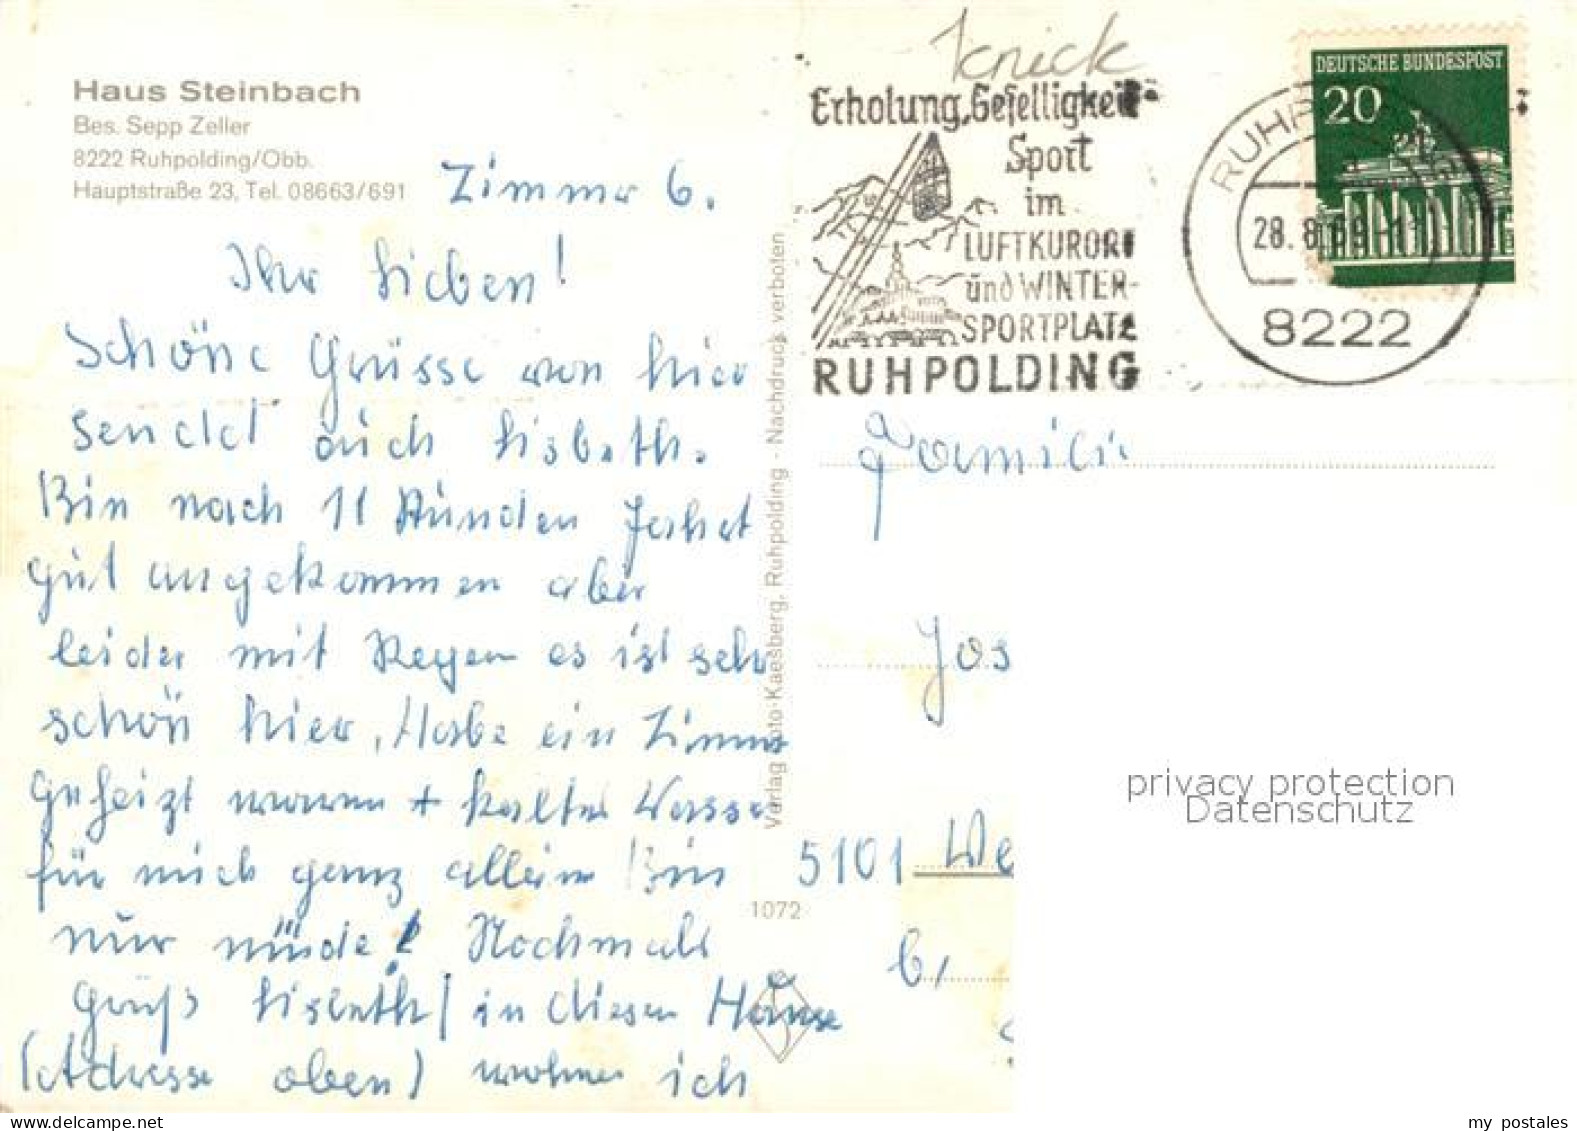 Haus Steinbach
Bes. Sepp Zeller
8222 Ruhpolding/Obb.
Hauptstraße 23, Tel. 08663/691
Zimmer 6.
Ihr Lieben!
Schöne Grüsse von hier
sendet euch Lisbeth.
Bin nach 11 Stunden Fahrt
gut angekommen aber
leider mit Regen es ist sehr
schön hier, Habe ein Zimmer
geheizt warm + kaltes Wasser
für mich ganz allein Bin
nur müde! Nochmals
Gruß Lisbeth / in diesem Hause
(Adresse oben) wohne ich
Verlag Foto-Kaesberg, Ruhpolding - Nachdruck verboten
1072
Knick
Erholung, Geselligkeit
Sport
im
LUFTKURORT
und WINTER-
SPORTPLATZ
RUHPOLDING
DEUTSCHE BUNDESPOST
20
28.8.69
8222
Familie
Jos
5101 We
privacy protection
Datenschutz
my postales